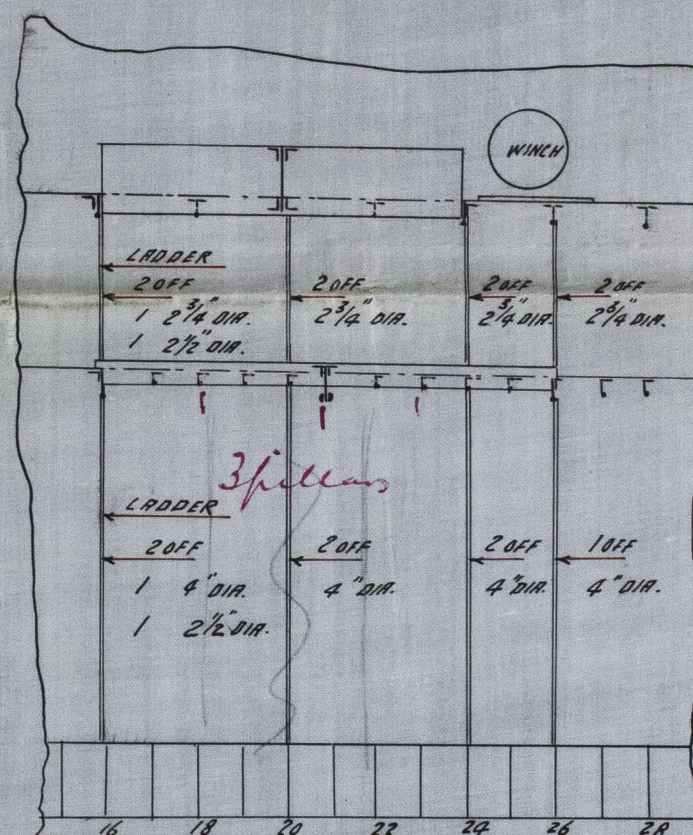 WINCH
LADDER
2 OFF
1 2 3/4" DIA.
1 2 1/2" DIA.
2 OFF
2 3/4" DIA.
2 OFF
2 3/4" DIA.
2 OFF
2 3/4" DIA.
3 pillars
LADDER
2 OFF
1 4" DIA.
1 2 1/2" DIA.
2 OFF
4" DIA.
2 OFF
4" DIA.
1 OFF
4" DIA.
16 18 20 22 24 26 28